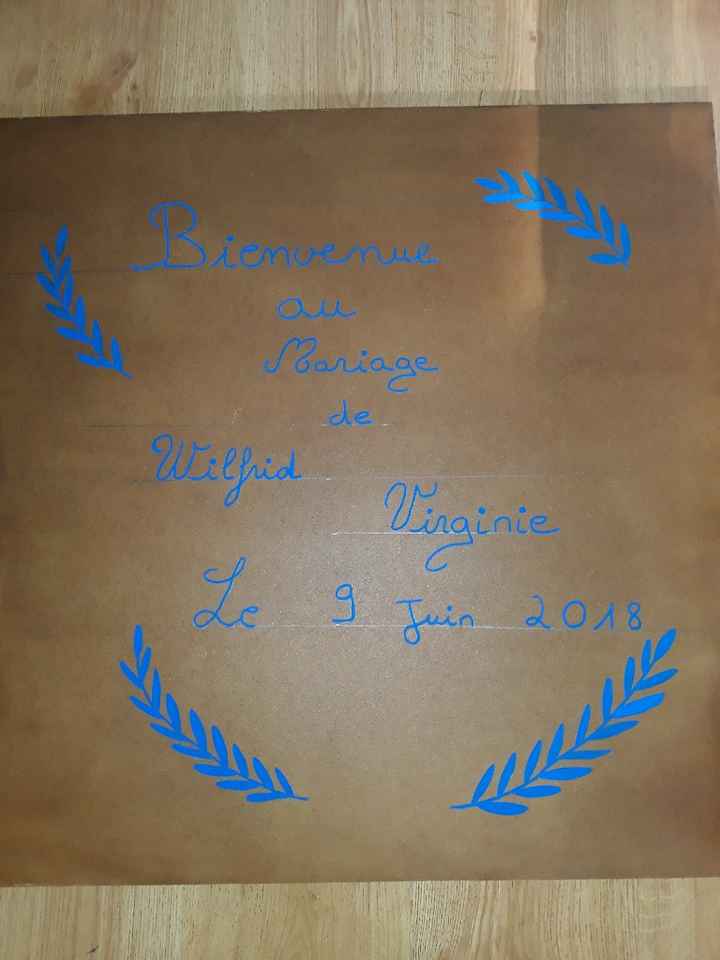 Bienvenue
au
Mariage
de
Wilfrid
Virginie
Le 9 Juin 2018